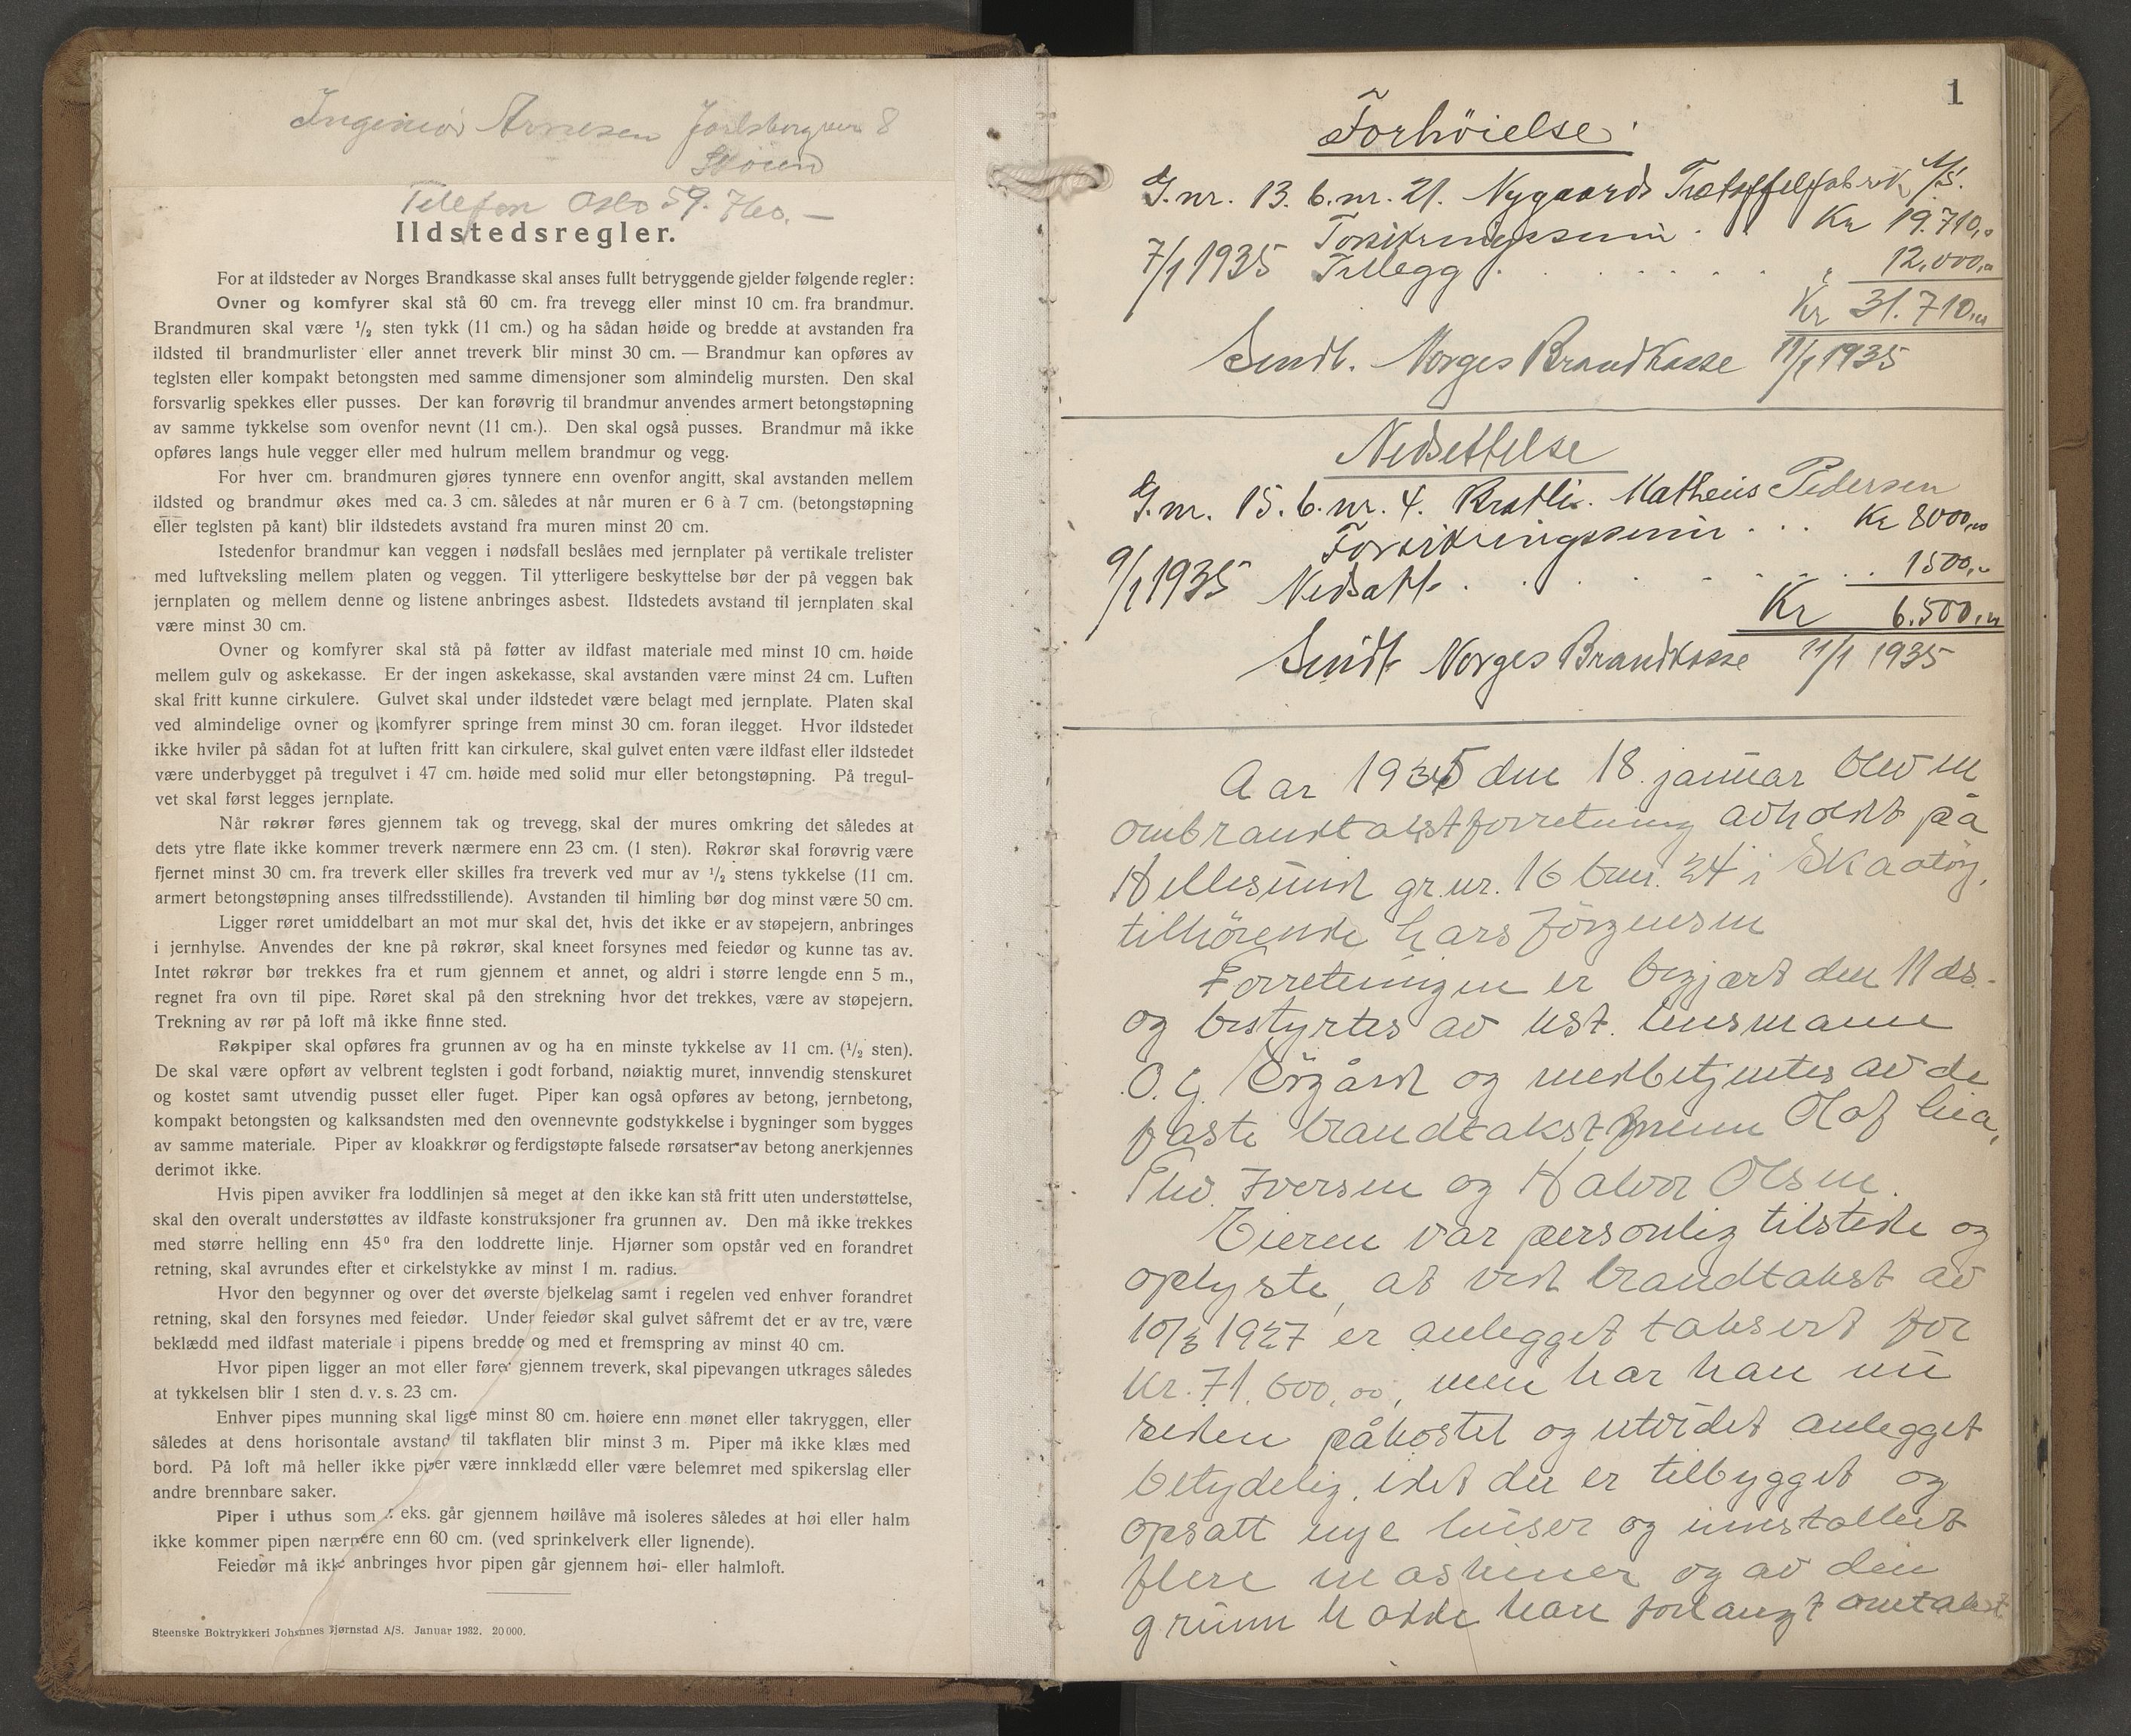 Ingeniør Arnesen Jarlsborgveien 8
Skøien
Telefon Oslo 59.760.—
Ildstedsregler.
For at ildsteder av Norges Brandkasse skal anses fullt betryggende gjelder følgende regler:
Ovner og komfyrer skal stå 60 cm. fra trevegg eller minst 10 cm. fra brandmur.
Brandmuren skal være 1/2 sten tykk (11 cm.) og ha sådan høide og bredde at avstanden fra
ildsted til brandmurlister eller annet treverk blir minst 30 cm. — Brandmur kan opføres av
teglsten eller kompakt betongsten med samme dimensjoner som almindelig mursten. Den skal
forsvarlig spekkes eller pusses. Der kan forøvrig til brandmur anvendes armert betongstøpning
av samme tykkelse som ovenfor nevnt (11 cm.). Den skal også pusses. Brandmur må ikke
opføres langs hule vegger eller med hulrum mellem brandmur og vegg.
For hver cm. brandmuren gjøres tynnere enn ovenfor angitt, skal avstanden mellem
ildsted og brandmur økes med ca. 3 cm. således at når muren er 6 à 7 cm. (betongstøpning
eller teglsten på kant) blir ildstedets avstand fra muren minst 20 cm.
Istedenfor brandmur kan veggen i nødsfall beslåes med jernplater på vertikale trelister
med luftveksling mellem platen og veggen. Til ytterligere beskyttelse bør der på veggen bak
jernplaten og mellem denne og listene anbringes asbest. Ildstedets avstand til jernplaten skal
være minst 30 cm.
Ovner og komfyrer skal stå på føtter av ildfast materiale med minst 10 cm. høide
mellem gulv og askekasse. Er der ingen askekasse, skal avstanden være minst 24 cm. Luften
skal fritt kunne cirkulere. Gulvet skal under ildstedet være belagt med jernplate. Platen skal
ved almindelige ovner og komfyrer springe frem minst 30 cm. foran ilegget. Hvor ildstedet
ikke hviler på sådan fot at luften fritt kan cirkulere, skal gulvet enten være ildfast eller ildstedet
være underbygget på tregulvet i 47 cm. høide med solid mur eller betongstøpning. På tregul-
vet skal først legges jernplate.
Når røkrør føres gjennem tak og trevegg, skal der mures omkring det således at
dets ytre flate ikke kommer treverk nærmere enn 23 cm. (1 sten). Røkrør skal forøvrig være
fjernet minst 30 cm. fra treverk eller skilles fra treverk ved mur av 1/2 stens tykkelse (11 cm.
armert betongstøpning anses tilfredsstillende). Avstanden til himling bør dog minst være 50 cm.
Ligger røret umiddelbart an mot mur skal det, hvis det ikke er av støpejern, anbringes
i jernhylse. Anvendes der kne på røkrør, skal kneet forsynes med feiedør og kunne tas av.
Intet røkrør bør trekkes fra et rum gjennem et annet, og aldri i større lengde enn 5 m.,
regnet fra ovn til pipe. Røret skal på den strekning hvor det trekkes, være av støpejern.
Trekning av rør på loft må ikke finne sted.
Røkpiper skal opføres fra grunnen av og ha en minste tykkelse av 11 cm. (1/2 sten).
De skal være opført av velbrent teglsten i godt forband, nøiaktig muret, innvendig stenskuret
og kostet samt utvendig pusset eller fuget. Piper kan også opføres av betong, jernbetong,
kompakt betongsten og kalksandsten med den ovennevnte godstykkelse i bygninger som bygges
av samme materiale. Piper av kloakkrør og ferdigstøpte falsede rørsatser av betong anerkjennes
derimot ikke.
Hvis pipen avviker fra loddlinjen så meget at den ikke kan stå fritt uten understøttelse,
skal den overalt understøttes av ildfaste konstruksjoner fra grunnen av. Den må ikke trekkes
med større helling enn 45° fra den loddrette linje. Hjørner som opstår ved en forandret
retning, skal avrundes efter et cirkelstykke av minst 1 m. radius.
Hvor den begynner og over det øverste bjelkelag samt i regelen ved enhver forandret
retning, skal den forsynes med feiedør. Under feiedør skal gulvet såfremt det er av tre, være
beklædd med ildfast materiale i pipens bredde og med et fremspring av minst 40 cm.
Hvor pipen ligger an mot eller føres gjennem treverk, skal pipevangen utkrages således
at tykkelsen blir 1 sten d. v. s. 23 cm.
Enhver pipes munning skal ligge minst 80 cm. høiere enn mønet eller takryggen, eller
således at dens horisontale avstand til takflaten blir minst 3 m. Piper må ikke klæs med
bord. På loft må heller ikke piper være innklædd eller være belemret med spikerslag eller
andre brennbare saker.
Piper i uthus som f. eks. går gjennem høilåve må isoleres således at høi eller halm
ikke kommer pipen nærmere enn 60 cm. (ved sprinkelverk eller lignende).
Feiedør må ikke anbringes hvor pipen går gjennem høi- eller halmloft.
Steenske Boktrykkeri Johannes Bjørnstad A/S. Januar 1932. 20 000.
1
Forhöielse
G.nr. 13. b.nr. 21. Nygaards Trætøffelfabrik A/S.
Forsikringssum . . Kr 19.710,00
7/1 1935 Tillegg . . . . . . . " 12.000,00
Kr 31.710,00
Sendt. Norges Brandkasse 11/1 1935
Nedsettelse
G.nr. 15. b.nr. 4. Kratli. Matheus Pedersen
Forsikringssum . . . Kr 8000,00
9/1 1935 Nedsatt . . . . . . . . 1500,00
Kr 6.500,00
Sendt Norges Brandkasse 11/1 1935
Aar 1935 den 18. januar blev en
ombrandtakstforretning avholdt på
Hellesund gr.nr. 16 bnr. 24 i Skaatöy,
tilhörende Lars Jörgensen
Forretningen er begjært den 11 ds.
og bestyrtes av kst. lensmann
O. G. Örgård og medbetjentes av de
faste brandtakstmenn Olaf Lia,
Thv. Iversen og Halvor Olsen.
Eieren var personlig tilstede og
oplyste, at ved brandtakst av
10/3 1927 er anlegget taksert for
Kr. 71.600,00, men har han nu
siden påkostet og utvidet anlegget
betydelig, idet der er tilbygget og
opsatt nye huser og innstallert
flere maskiner og av den
grunn hadde han forlangt omtakst.